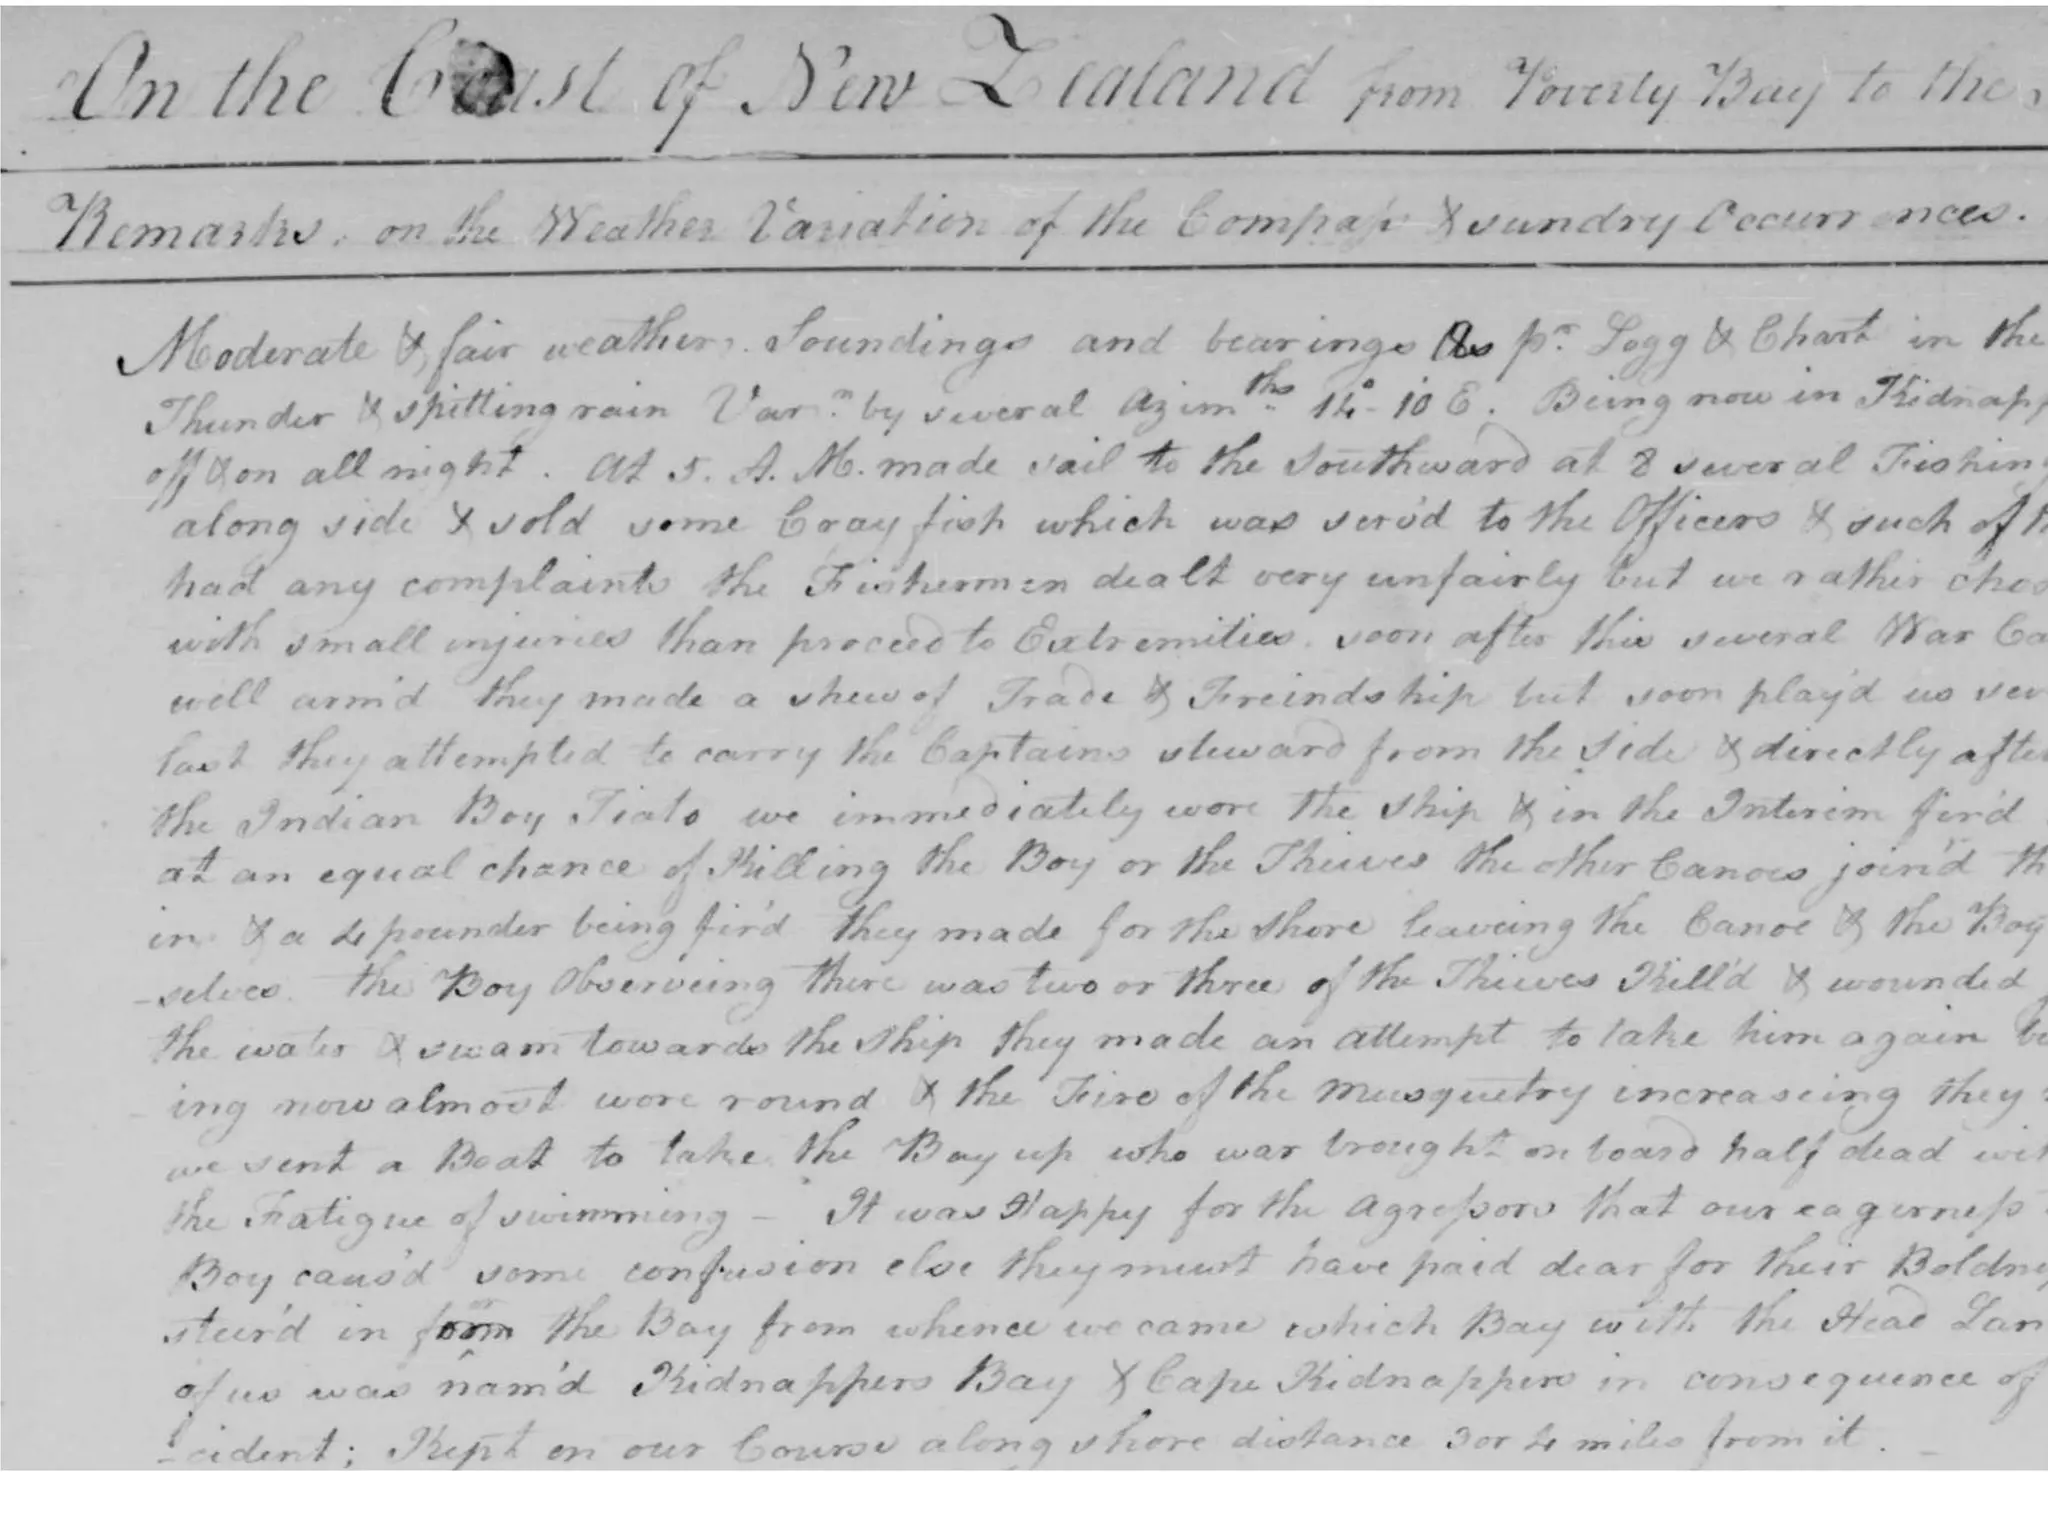 On the Coast of New Zealand from Poverty Bay to the
Remarks. on the Weather Variation of the Compass & sundry Occurrences.
Moderate & fair weather. Soundings and bearings As pr. Logg & Chart in the
Thunder & spitting rain Varn. by several Azimths. 14°-10 E. Being now in Kidnapp
off & on all night. At 5. A. M. made sail to the Southward at 8 several Fishing
along side & sold some Cray fish which was serv'd to the Officers & such of th
had any complaints the Fishermen dealt very unfairly but we rather chos
with small injuries than proceed to Extremities. soon after this several War Ca
well arm'd they made a shew of Trade & Freindship but soon play'd us sev
last they attempted to carry the Captains steward from the side & directly after
the Indian Boy Tiato we immediately wore the ship & in the Interim fir'd
at an equal chance of Killing the Boy or the Thieves the other Canoes join'd th
in & a 4 pounder being fir'd they made for the shore leaveing the Canoe & the Boy
-selves. the Boy Observeing there was two or three of the Thieves Kill'd & wounded
the water & swam towards the ship they made an attempt to take him again bu
ing now almost wore round & the Fire of the Musquetry increaseing they
we sent a Boat to take the Boy up who was brought on board half dead wit
the Fatigue of swimming - It was Happy for the Agressors that our eagerness
Boy caus'd some confusion else they must have paid dear for their Boldness
steer'd in for the Bay from whence we came which Bay with the Head Lan
of us was nam'd Kidnappers Bay & Cape Kidnappers in consequence of
-cident; Kept on our Course along shore distance 3 or 4 miles from it. -